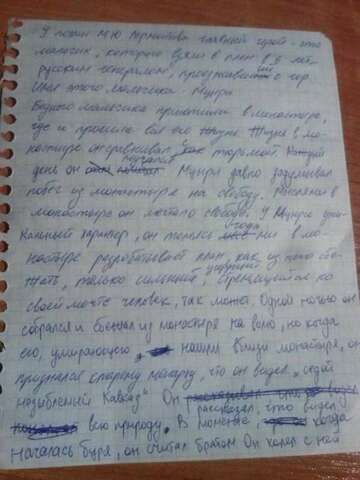 У поэмы М.Ю Лермонтова главный герой - это
мальчик, которого взяли в плен в 6 лет
русским генералом, проезжавшим с гор.
Имя этого мальчика - Мцыри.
Бедного мальчика приютили в монастыре,
где и прошла вся его жизнь. Жизнь в мо-
настыре он сравнивал как тюрьмой. Каждый
день он Мцыри давно задумывал
побег из монастыря на свободу.
монастыре он мечтал о свободе. У Мцыри уни-
кальный характер, он только в мо-
настыре разрабатывает план, как из него сбе-
жать, только сильный, стремящийся ко
своей мечте человек, так может. Одной ночью он
собрался и сбежал из монастыря на волю, но когда
его, умирающего, нашли вблизи монастыря, он
признался старому монаху, что он видел "седой
незыблемый Кавказ". Он
рассказал, что видел
всю природу. В моменте когда
началась буря, он считал братом Он хотел с ней